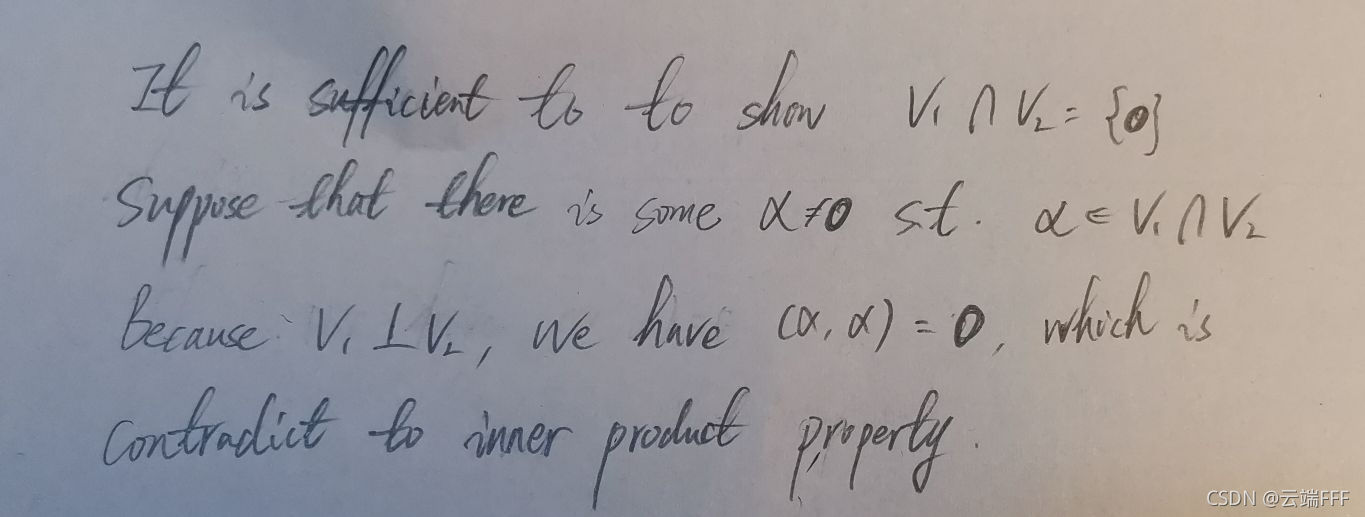 It is sufficient to to show V₁ ∩ V₂ = {0}
Suppose that there is some α≠0 s.t. α ∈ V₁ ∩ V₂
because V₁ ⊥ V₂, we have (α, α) = 0, which is
contradict to inner product property.
CSDN @云端FFF